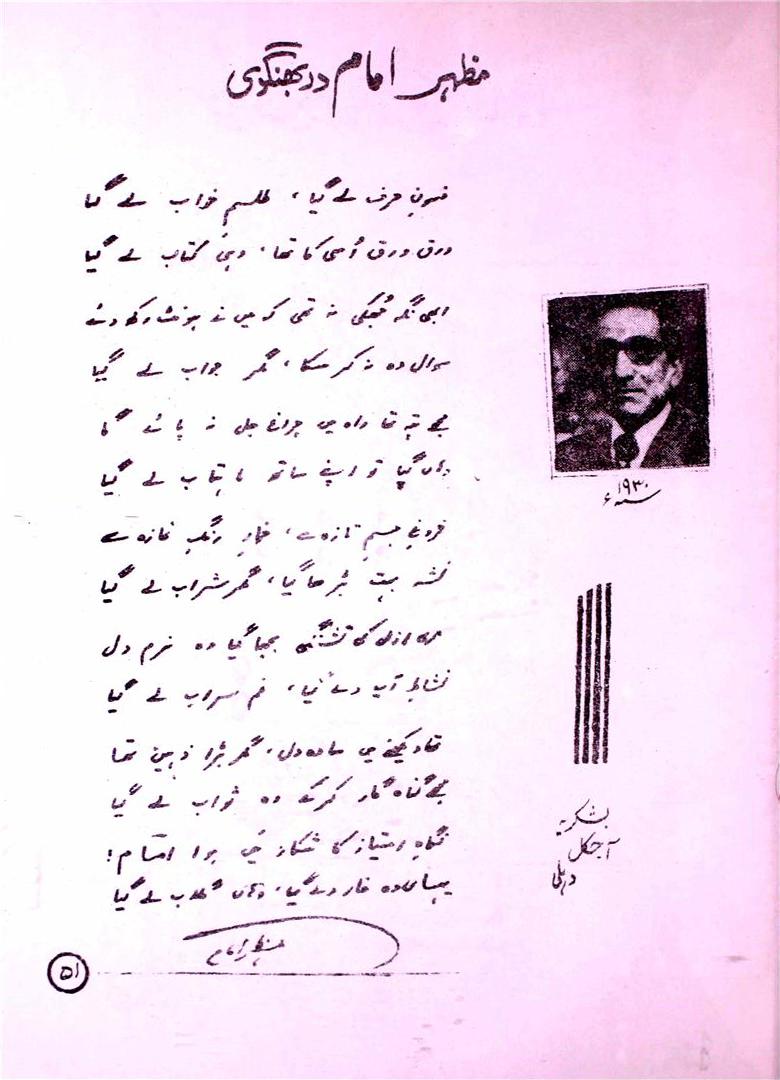 مظہر امام دربھنگوی
فسونِ حرف لے گیا، طلسمِ خواب لے گیا
ورق ورق اُسی کا تھا، وہی کتاب لے گیا
ابھی نگہ جُھکی نہ تھی کہ میں نے ہونٹ رکھ دئے
سوال وہ نہ کر سکا، مگر جواب لے گیا
مجھے پتہ تھا راہ میں چراغ جل نہ پائے گا
وہاں گیا تو اپنے ساتھ ماہتاب لے گیا
فروغِ جسمِ تازہ سے، خمارِ رنگِ غازہ سے
نشہ بہت بڑھا گیا، مگر شراب لے گیا
مری ازل کی تشنگی بجھا گیا وہ نرم دل
نشاطِ آب دے گیا، غمِ سراب لے گیا
تھا دیکھنے میں سادہ دل، مگر بڑا ذہین تھا
مجھے گناہ گار کر کے وہ ثواب لے گیا
نگاہِ امتیاز کا شکار میں ہوا امام!
یہاں وہ خار دے گیا، وہاں گلاب لے گیا
مظہر امام
۵۱
۱۹۳۰ سنہ ء
بشکریہ
آجکل
دہلی